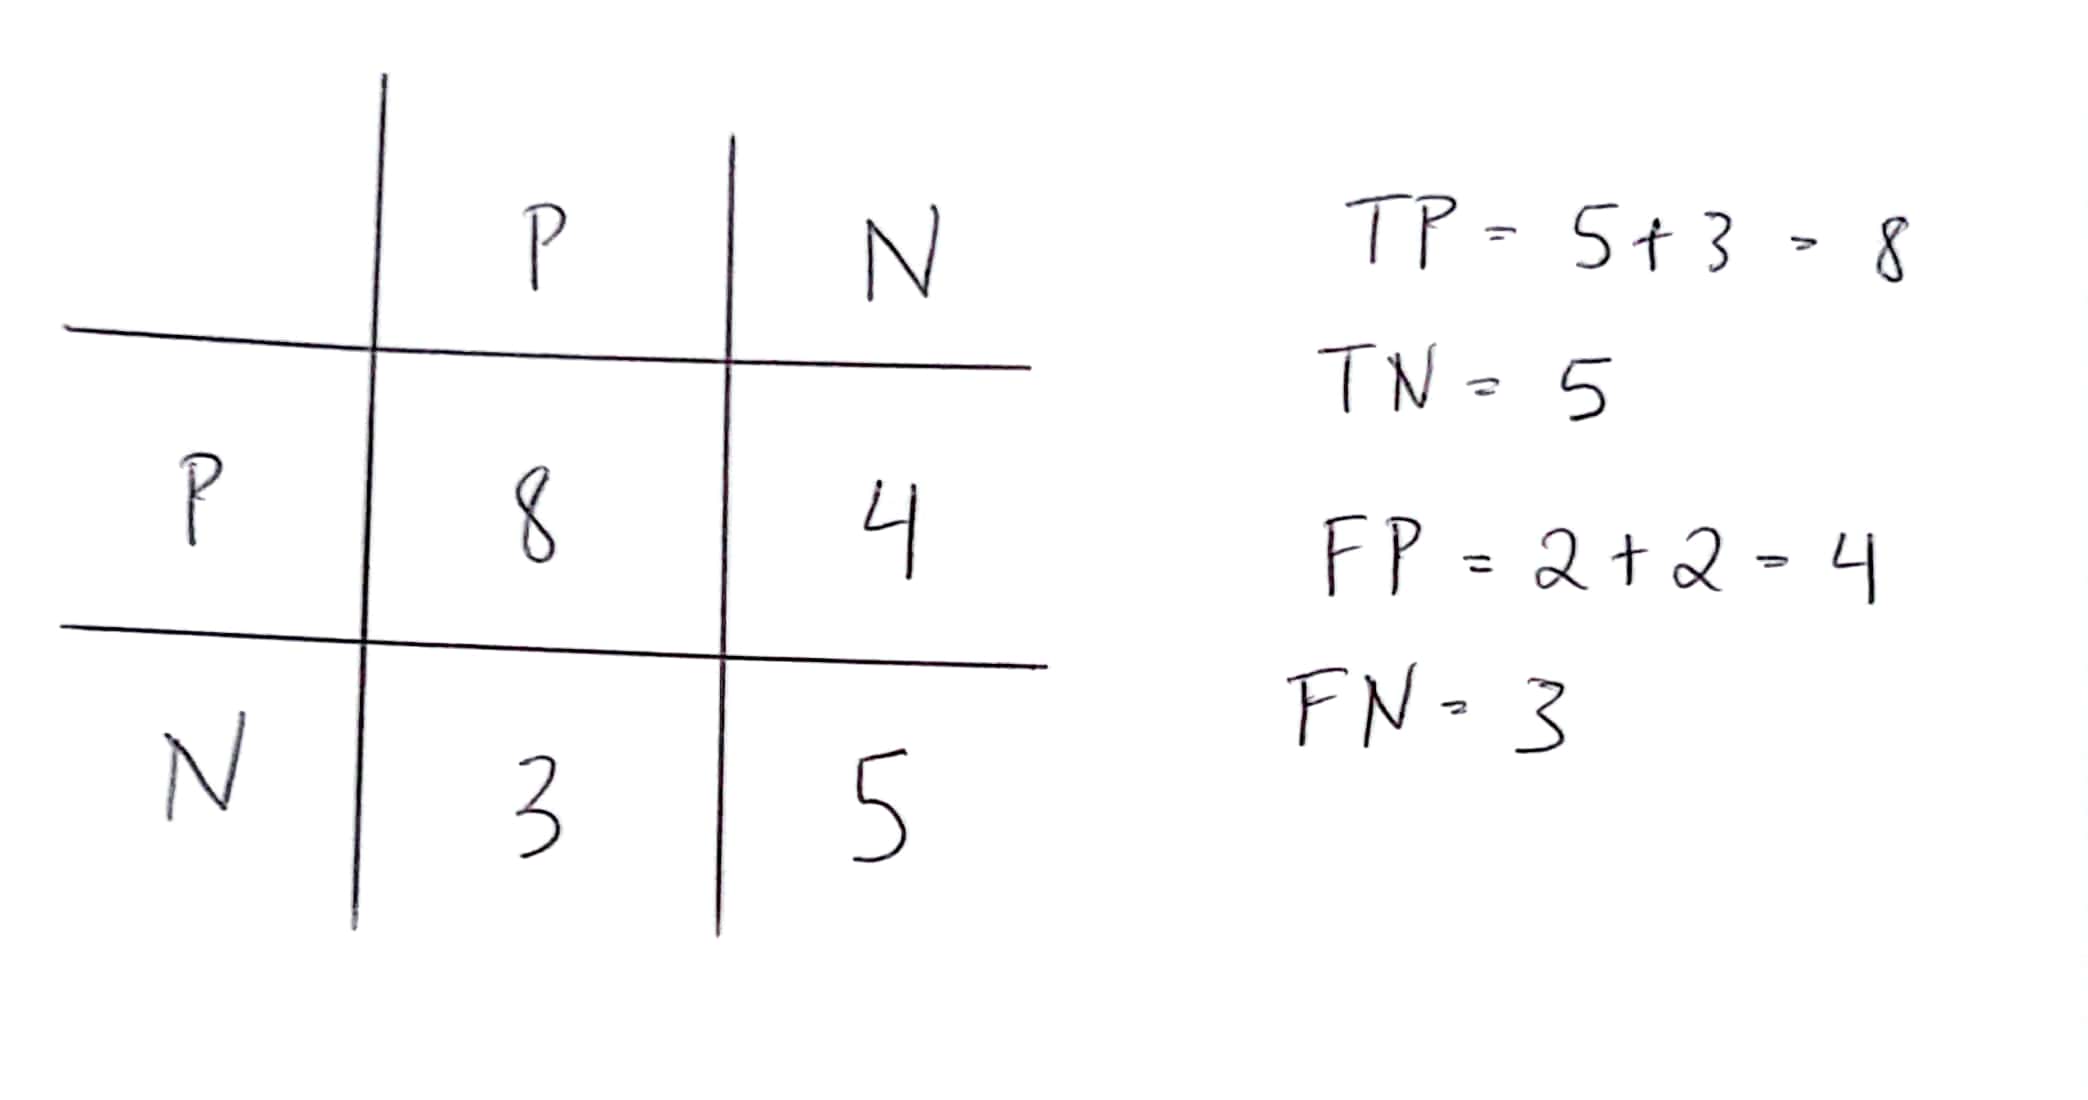 P N
P 8 4
N 3 5
TP = 5+3 = 8
TN = 5
FP = 2+2 = 4
FN = 3